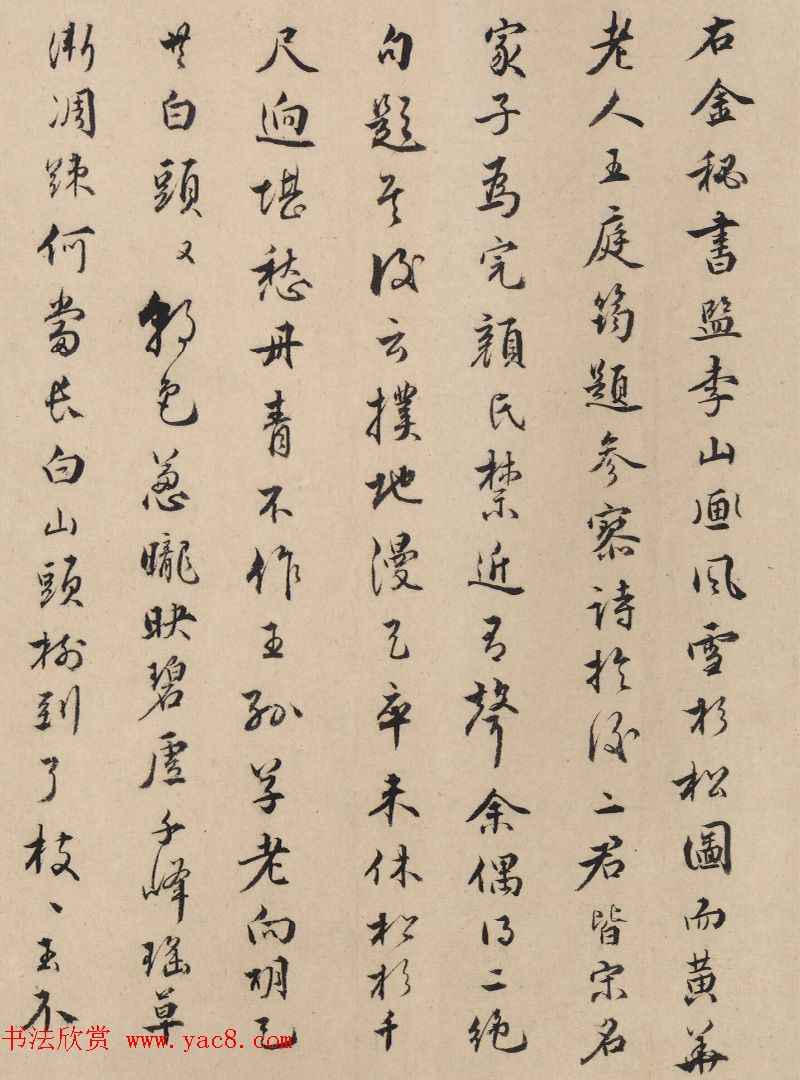 右金秘書監李山畫風雪杉松圖而黃華
老人王庭筠題參寥詩於後二君皆宋名
家子為完顏氏禁近有聲余偶得二絕
句題其後云撲地漫天卒未休松杉千
尺迥堪愁丹青不作王孫草老向明昌
共白頭又色葱曨映碧虛千峰瑤草
漸凋疎何當長白山頭樹到了枝〻玉不
书法欣赏 www.yac8.com